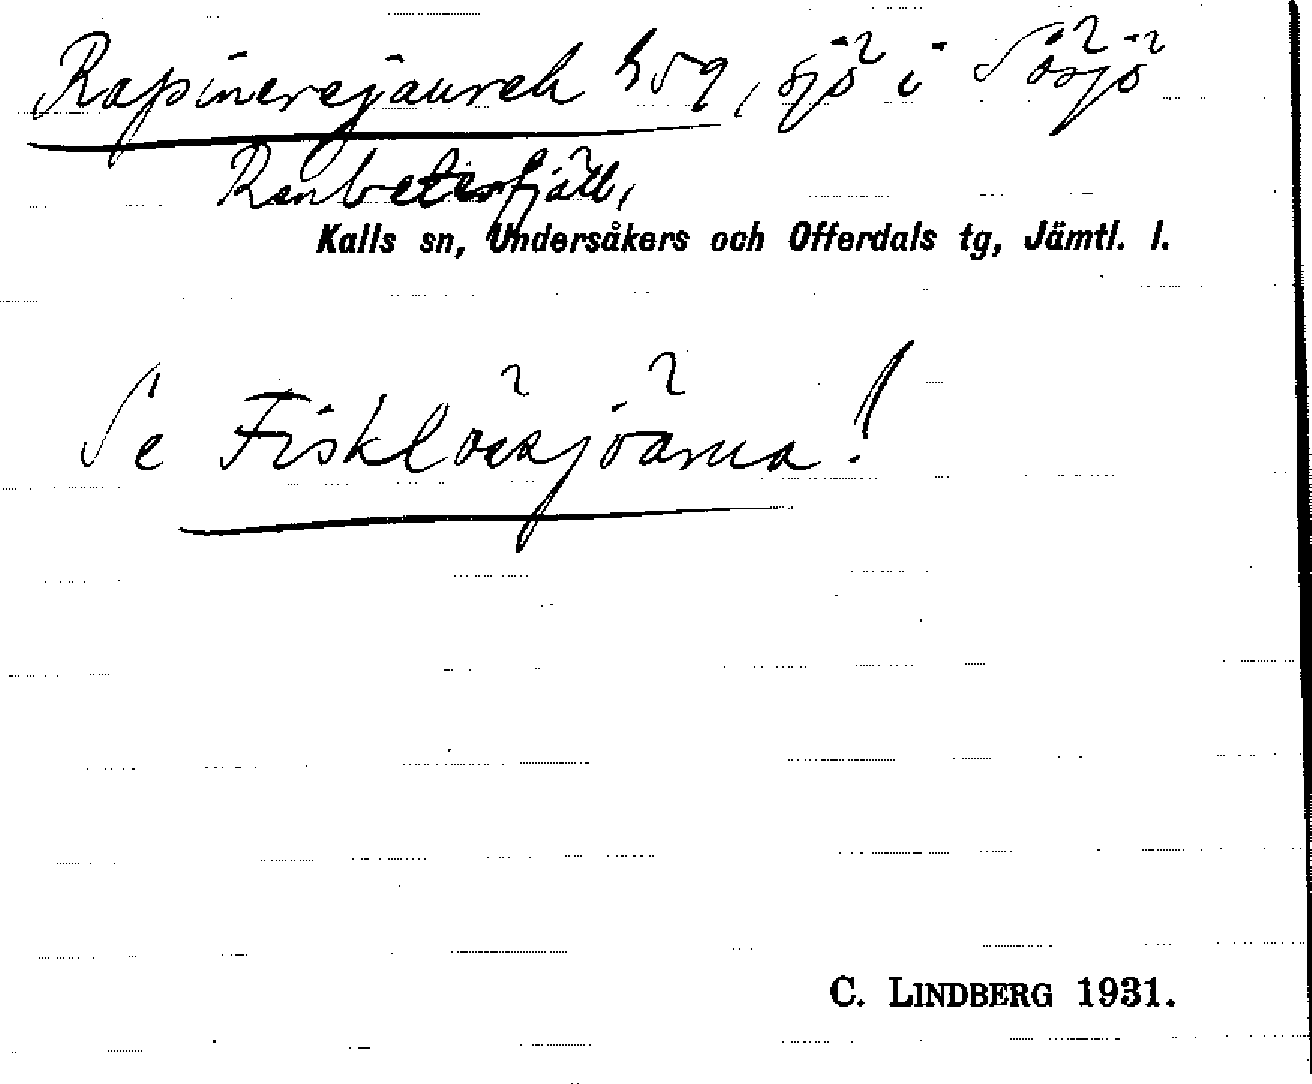 Rapinerejaureh 459, sjö i Sösjö
Renbetesfjäll,
Kalls sn, Undersåkers och Offerdals tg, Jämtl. l.
Se Fisklössjöarna!
C. LINDBERG 1931.